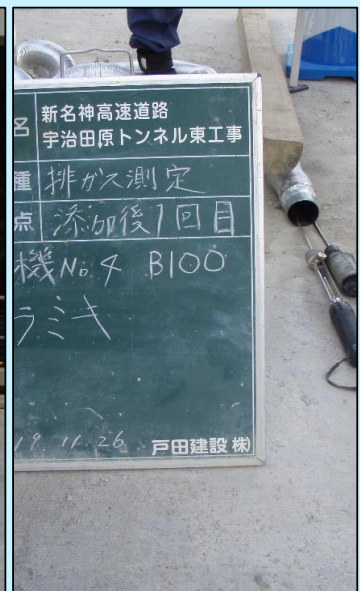 名 新名神高速道路
宇治田原トンネル東工事
種 排ガス測定
点 添加後1回目
機No.4 B100
ラミキ
19.11.26 戸田建設㈱